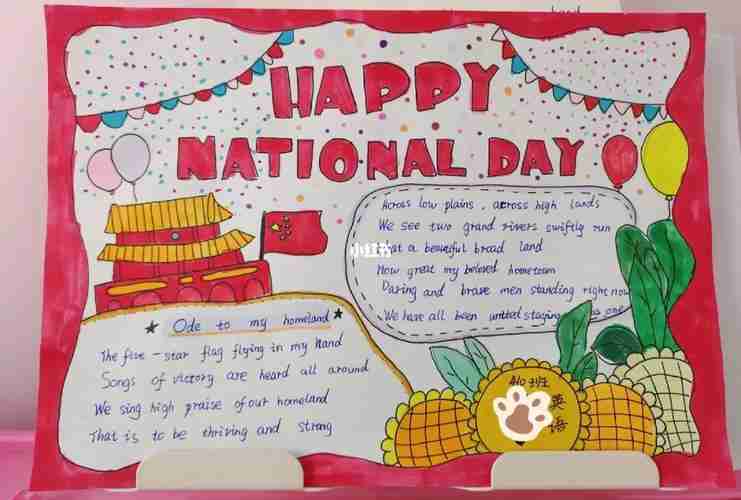 HAPPY
NATIONAL DAY
Across low plains, across high lands
We see two grand rivers swiftly run
at a beautiful broad land
How great my beloved hometown
Daring and brave men standing right now
We have all been united staging as one
小红书
Ode to my homeland
The five-star flag flying in my hand
Songs of victory are heard all around
We sing high praise of our homeland
That is to be thriving and strong
班
英语